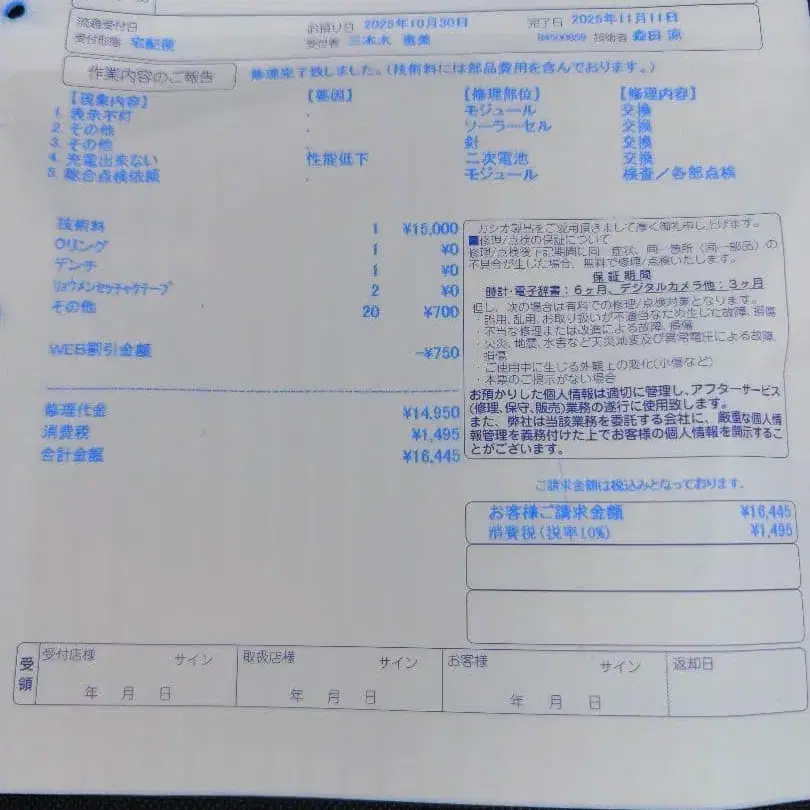 流通受付日 お預り日 2025年10月30日 完了日 2025年11月11日
受付形態 宅配便 受付者 三木木 恵美 84500859 技術者 森田 涼
作業内容のご報告 修理完了致しました。(技術料には部品費用を含んでおります。)
【現業内容】 【要因】 【修理部位】 【修理内容】
1. 表示不灯 . モジュール 交換
2. その他 . ソーラーセル 交換
3. その他 . 針 交換
4. 充電出来ない 性能低下 二次電池 交換
5. 総合点検依頼 . モジュール 検査/各部点検
技術料 1 ¥15,000
Oリング 1 ¥0
デンチ 1 ¥0
リョウメンセッチャクテープ 2 ¥0
その他 20 ¥700
WEB割引金額 -¥750
修理代金 ¥14,950
消費税 ¥1,495
合計金額 ¥16,445
カシオ製品をご愛用頂きまして厚く御礼申し上げます。
■修理/点検の保証について
修理/点検後下記期間に同一症状、同一箇所(同一部品)の
不具合が生じた場合、無料で修理/点検いたします。
保証期間
時計・電子辞書:6ヶ月、デジタルカメラ他:3ヶ月
但し、次の場合は有料での修理/点検対象となります。
・誤用、乱用、お取り扱いが不適当なため生じた故障、損傷
・不当な修理または改造による故障、損傷
・火災、地震、水害など天災地変及び異常電圧による故障、
損傷
・ご使用中に生じる外観上の変化(小傷など)
・本票のご提示がない場合
お預かりした個人情報は適切に管理し、アフターサービス
(修理、保守、販売)業務の遂行に使用致します。
また、弊社は当該業務を委託する会社に、厳重な個人情
報管理を義務付けた上でお客様の個人情報を開示するこ
とがございます。
ご請求金額は税込みとなっております。
お客様ご請求金額 ¥16,445
消費税(税率10%) ¥1,495
受領
受付店様 サイン 取扱店様 サイン お客様 サイン 返却日
年 月 日 年 月 日 年 月 日